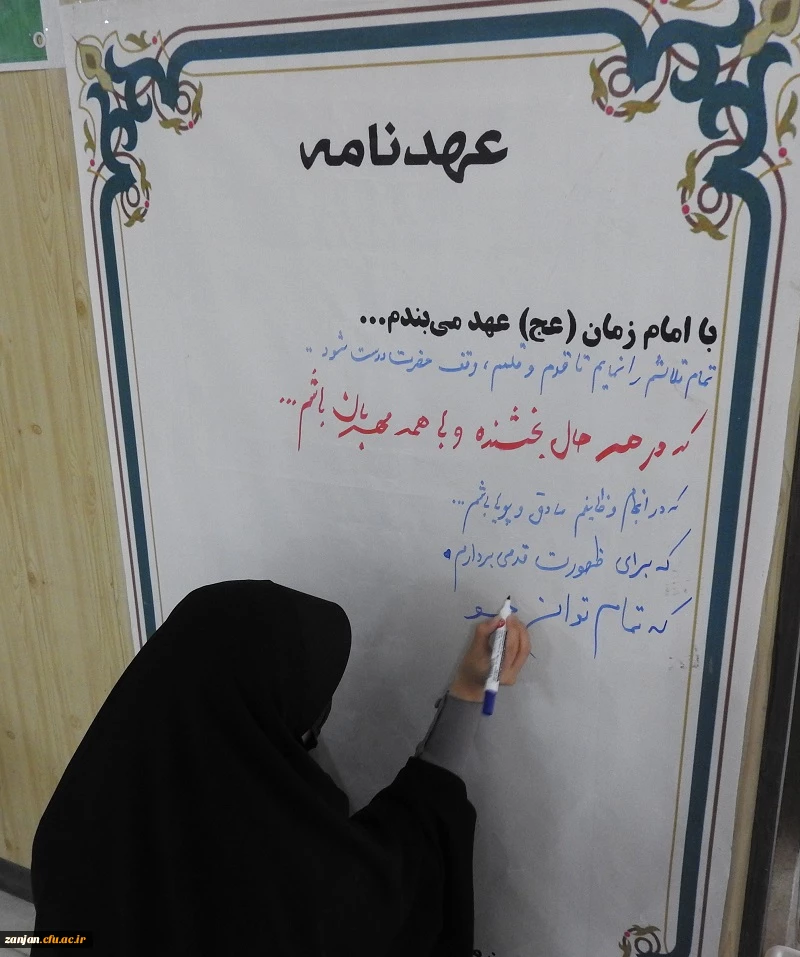 عهدنامه
با امام زمان (عج) عهد می‌بندم...
تمام تلاشم را نمایم تا قدم و قلمم، وقف حضرت دوست شود ..
که در همه حال بخشنده و با همه مهربان باشم...
که در انجام وظایفم صادق و پویا باشم...
که برای ظهورت قدمی بردارم.
که تمام توان
zanjan.cfu.ac.ir